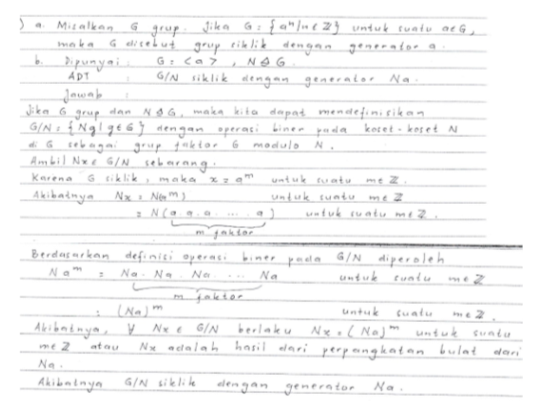 ) a. Misalkan G grup. Jika G = {aⁿ | n ∈ ℤ} untuk suatu a ∈ G,
maka G disebut grup siklik dengan generator a.
b. Dipunyai : G = <a>, N ⊴ G.
ADT : G/N siklik dengan generator Na.
Jawab :
Jika G grup dan N ⊴ G, maka kita dapat mendefinisikan
G/N = {Ng | g ∈ G} dengan operasi biner pada koset-koset N
di G sebagai grup faktor G modulo N.
Ambil Nx ∈ G/N sebarang.
Karena G siklik, maka x = aᵐ untuk suatu m ∈ ℤ.
Akibatnya Nx = N(aᵐ) untuk suatu m ∈ ℤ
= N(a.a.a. ... .a) untuk suatu m ∈ ℤ.
m faktor
Berdasarkan definisi operasi biner pada G/N diperoleh
Naᵐ = Na. Na. Na. ... Na untuk suatu m ∈ ℤ
m faktor
= (Na)ᵐ untuk suatu m ∈ ℤ.
Akibatnya, ∀ Nx ∈ G/N berlaku Nx = (Na)ᵐ untuk suatu
m ∈ ℤ atau Nx adalah hasil dari perpangkatan bulat dari
Na.
Akibatnya G/N siklik dengan generator Na.